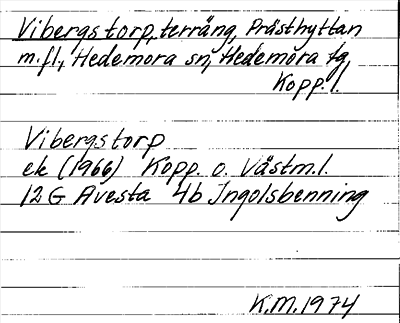 Vibergstorp, terräng, Prästhyttan
m.fl., Hedemora sn, Hedemora tg,
Kopp. l.
Vibergstorp
ek (1966) Kopp. o. Västm.l.
12 G Avesta 4b Ingolsbenning
K.M. 1974